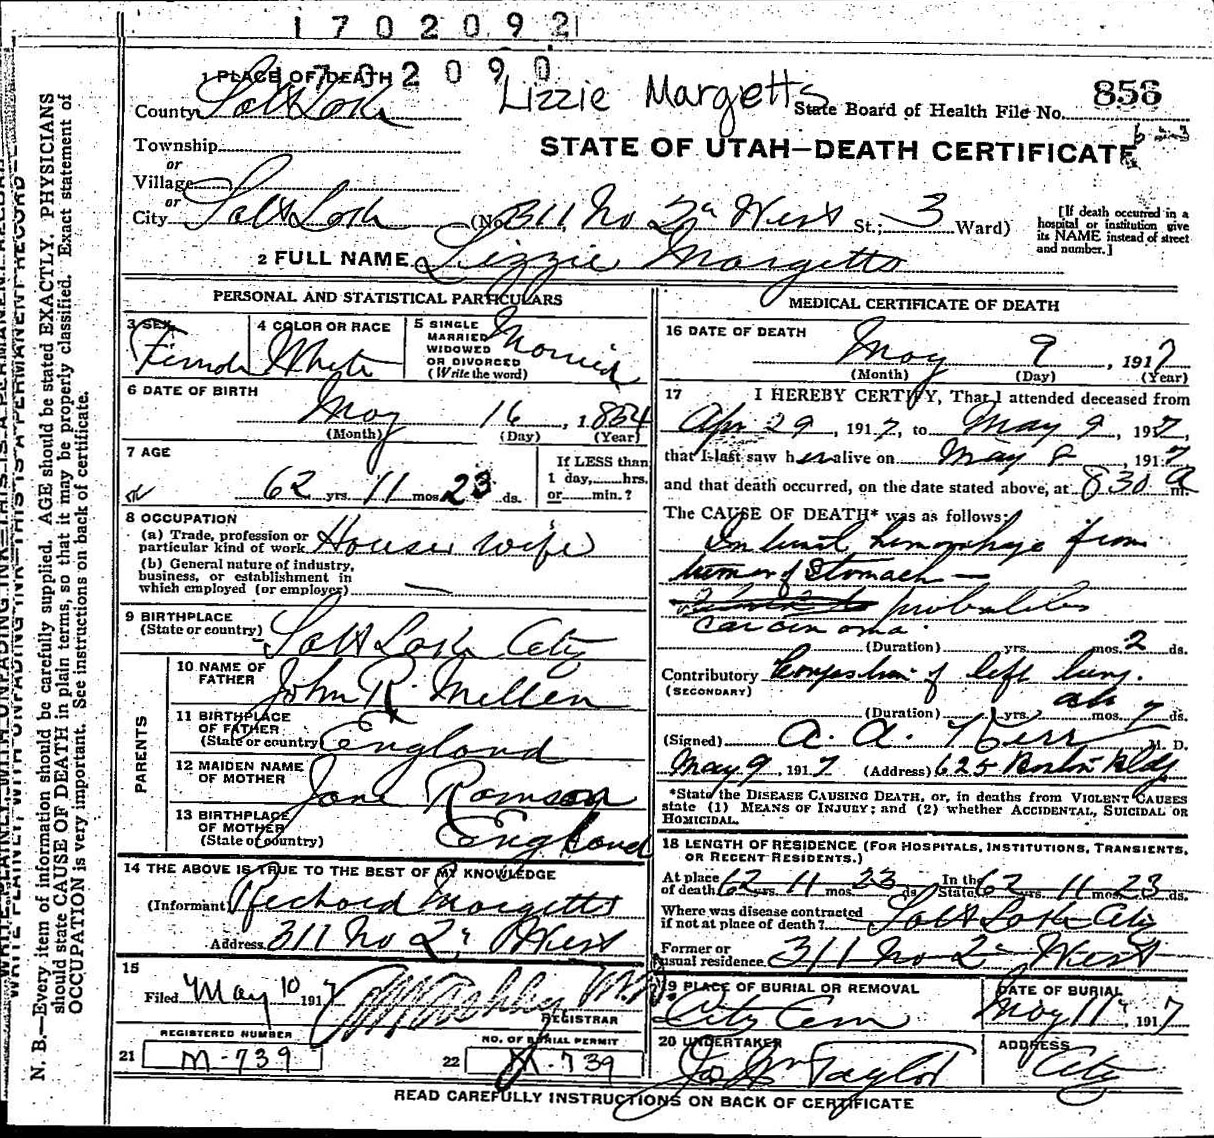 1702092
1 PLACE OF DEATH 1702090
County Salt Lake Lizzie Margetts State Board of Health File No. 856
Township
or
Village
or
City Salt Lake (No. 311 No 2d West St.; 3 Ward)
STATE OF UTAH—DEATH CERTIFICATE
[If death occurred in a
hospital or institution give
its NAME instead of street
and number.]
2 FULL NAME Lizzie Margetts
PERSONAL AND STATISTICAL PARTICULARS
3 SEX Female
4 COLOR OR RACE White
5 SINGLE
MARRIED
WIDOWED
OR DIVORCED
(Write the word) Married
6 DATE OF BIRTH
May 16, 1854
(Month) (Day) (Year)
7 AGE
62 yrs. 11 mos. 23 ds.
If LESS than
1 day, hrs.
or min.?
8 OCCUPATION
(a) Trade, profession or
particular kind of work House wife
(b) General nature of industry,
business, or establishment in
which employed (or employer)
9 BIRTHPLACE
(State or country) Salt Lake City
PARENTS
10 NAME OF
FATHER John R. Mellen
11 BIRTHPLACE
OF FATHER
(State or country) England
12 MAIDEN NAME
OF MOTHER Jane Ramson
13 BIRTHPLACE
OF MOTHER
(State or country) England
14 THE ABOVE IS TRUE TO THE BEST OF MY KNOWLEDGE
(Informant) Richard Margetts
Address 311 No 2d West
15
Filed May 10 1917
REGISTRAR
REGISTERED NUMBER
21 M-739
NO. OF BURIAL PERMIT
22 M-739
MEDICAL CERTIFICATE OF DEATH
16 DATE OF DEATH
May 9, 1917
(Month) (Day) (Year)
17 I HEREBY CERTIFY, That I attended deceased from
Apr 29, 1917, to May 9, 1917,
that I last saw her alive on May 8 1917
and that death occurred, on the date stated above, at 8 30 a m.
The CAUSE OF DEATH* was as follows:
hemorrhage from
tumor of Stomach —
probables
carcinoma.
(Duration) yrs. mos. 2 ds.
Contributory of left lung.
(SECONDARY)
(Duration) yrs. mos. 7 ds.
(Signed) A. A. Kerr M. D.
May 9, 1917 (Address) 625 Boston Bldg
*State the DISEASE CAUSING DEATH, or, in deaths from VIOLENT CAUSES
state (1) MEANS OF INJURY; and (2) whether ACCIDENTAL, SUICIDAL OR
HOMICIDAL.
18 LENGTH OF RESIDENCE (FOR HOSPITALS, INSTITUTIONS, TRANSIENTS,
OR RECENT RESIDENTS.)
At place
of death 62 yrs. 11 mos. 23 ds. In the
State 62 yrs. 11 mos. 23 ds.
Where was disease contracted
if not at place of death? Salt Lake City
Former or
usual residence 311 No 2d West
19 PLACE OF BURIAL OR REMOVAL
City Cem
DATE OF BURIAL
May 11, 1917
20 UNDERTAKER
Jos Wm Taylor
ADDRESS
City
READ CAREFULLY INSTRUCTIONS ON BACK OF CERTIFICATE
WRITE PLAINLY, WITH UNFADING INK—THIS IS A PERMANENT RECORD
N. B.—Every item of information should be carefully supplied. AGE should be stated EXACTLY. PHYSICIANS
should state CAUSE OF DEATH in plain terms, so that it may be properly classified. Exact statement of
OCCUPATION is very important. See instructions on back of certificate.